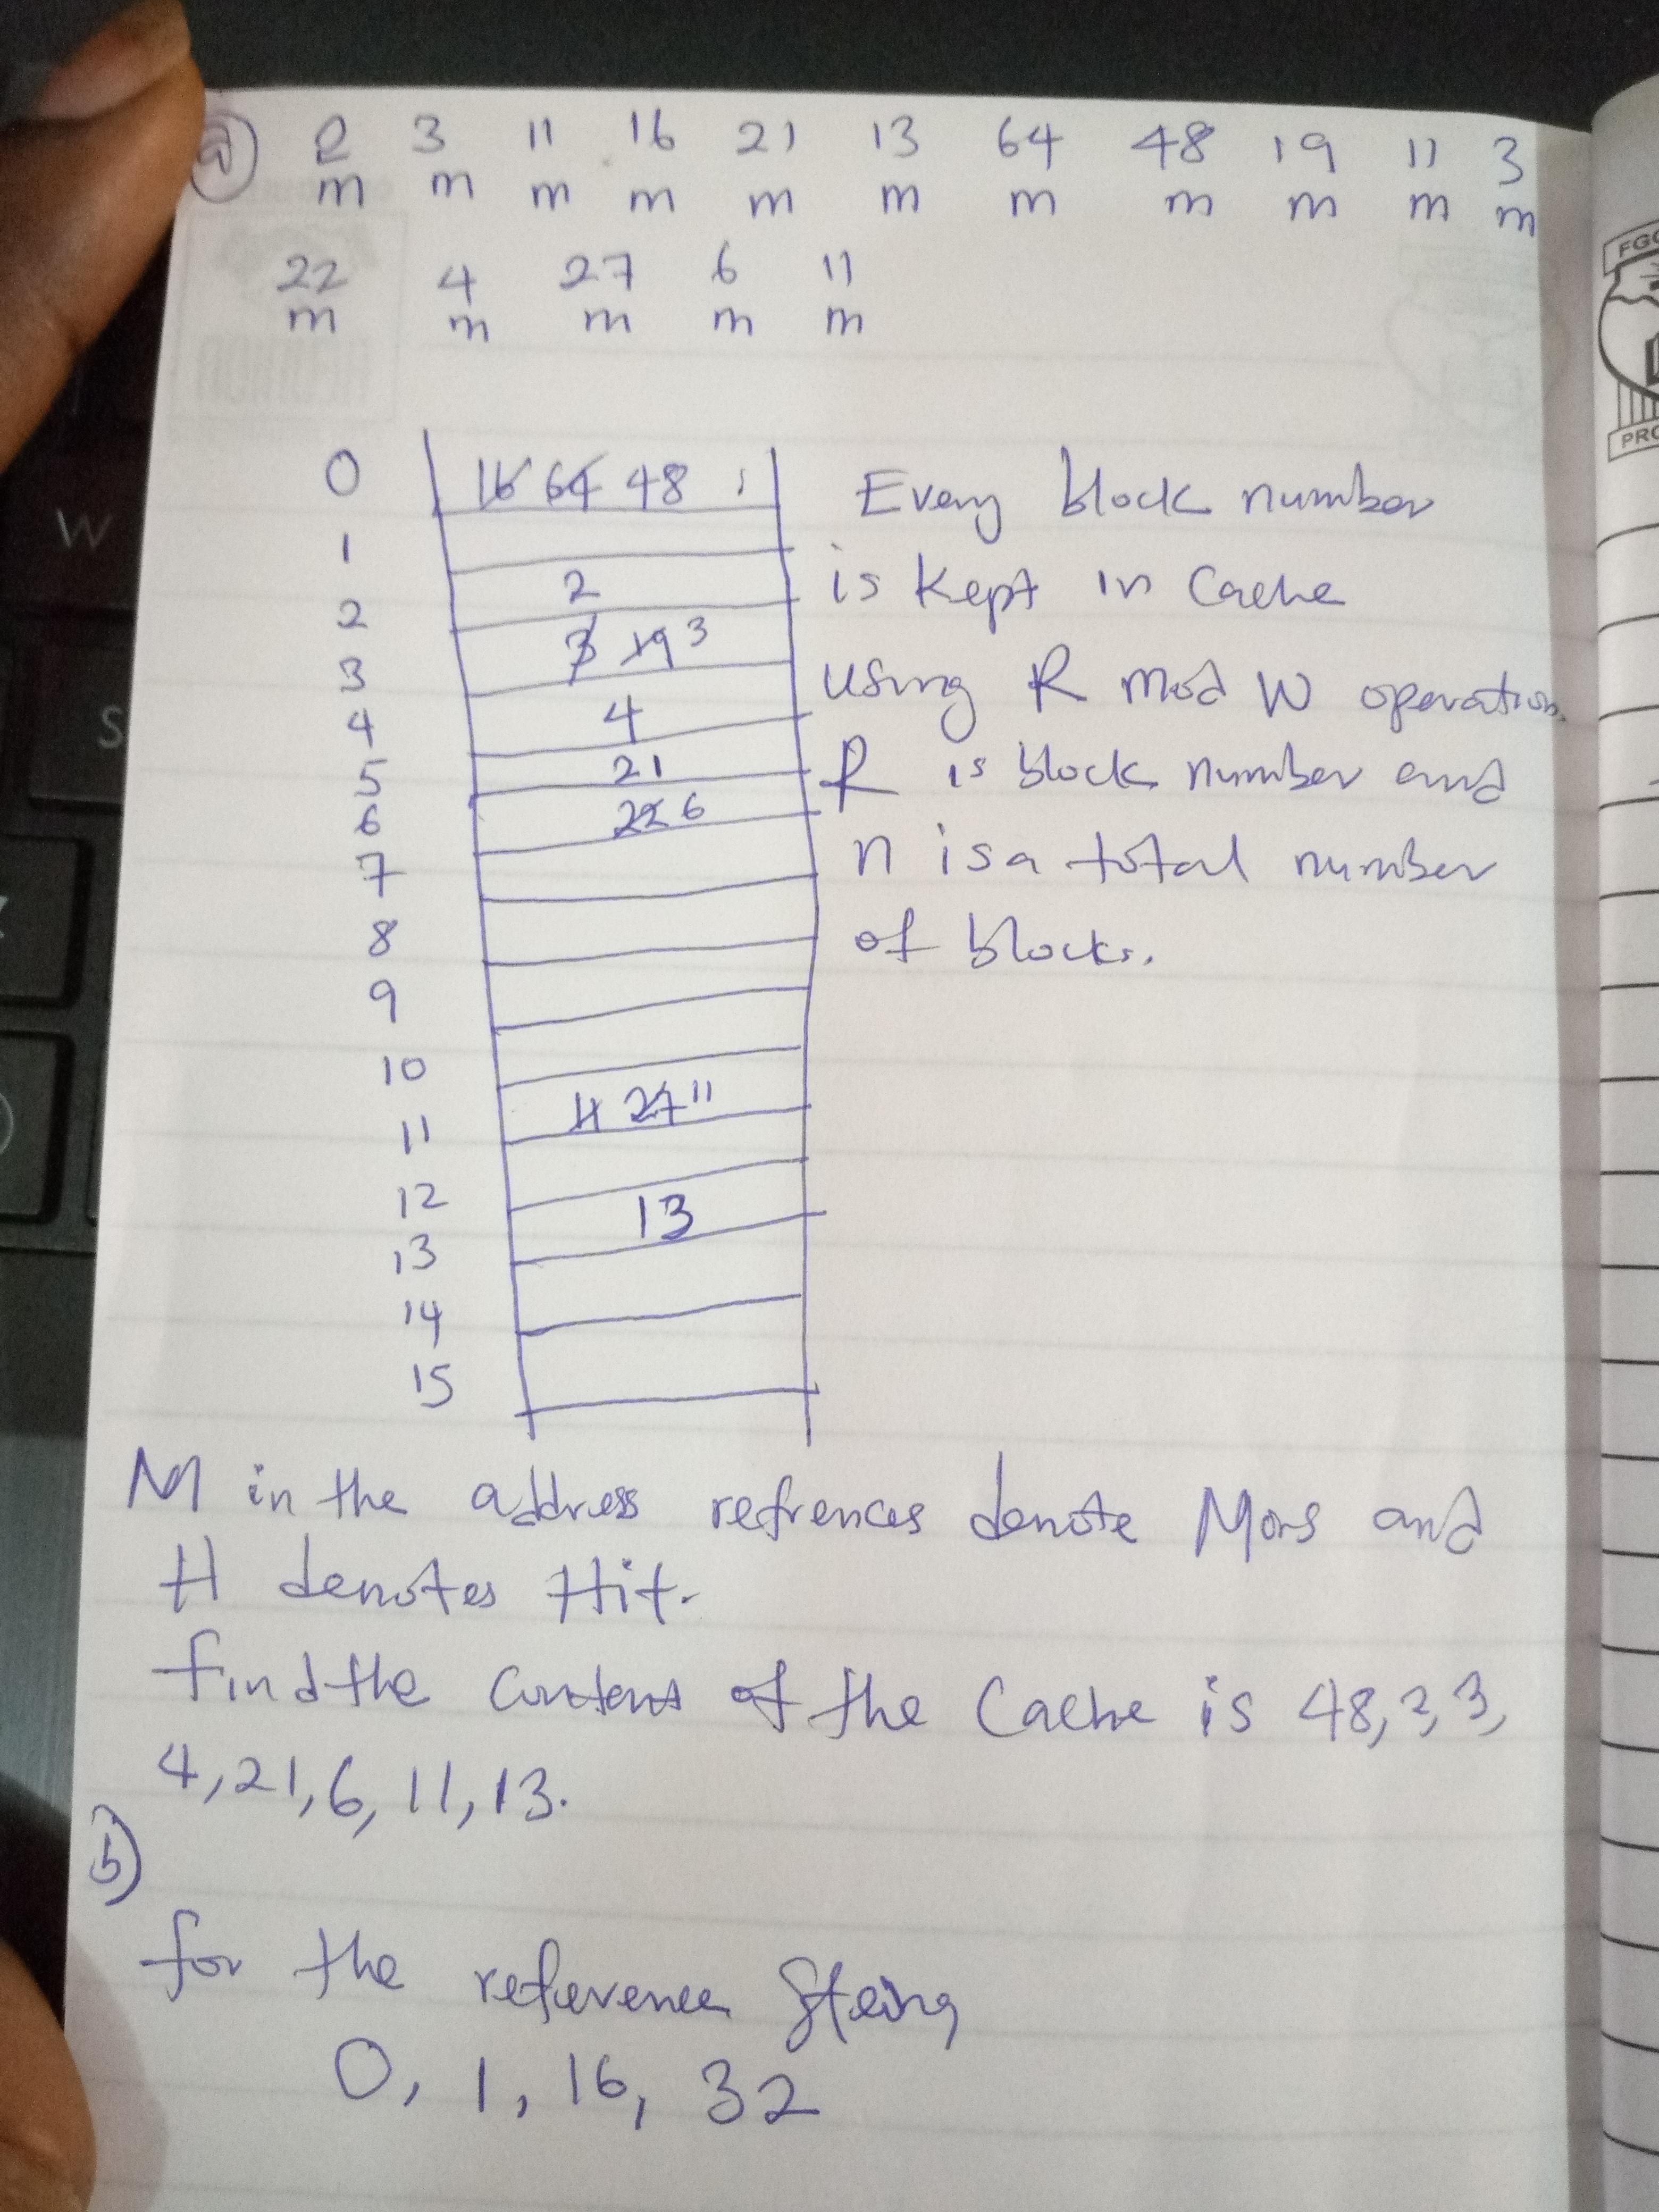 a 2 3 11 16 21 13 64 48 19 11 3
m m m m m m m m m m m
22 4 27 6 11
m m m m m
0 16 64 48
1
2 2
3 3 19 3
4 4
5 21
6 22 6
7
8
9
10
11 11 27 11
12
13 13
14
15
Every block number
is kept in Cache
using R mod W operation.
R is block number and
n is a total number
of blocks.
M in the address refrences denote Mors and
H denotes Hit.
find the content of the Cache is 48, 2, 3,
4, 21, 6, 11, 13.
b)
for the reference Steing
0, 1, 16, 32
FGC
PRO
W
S